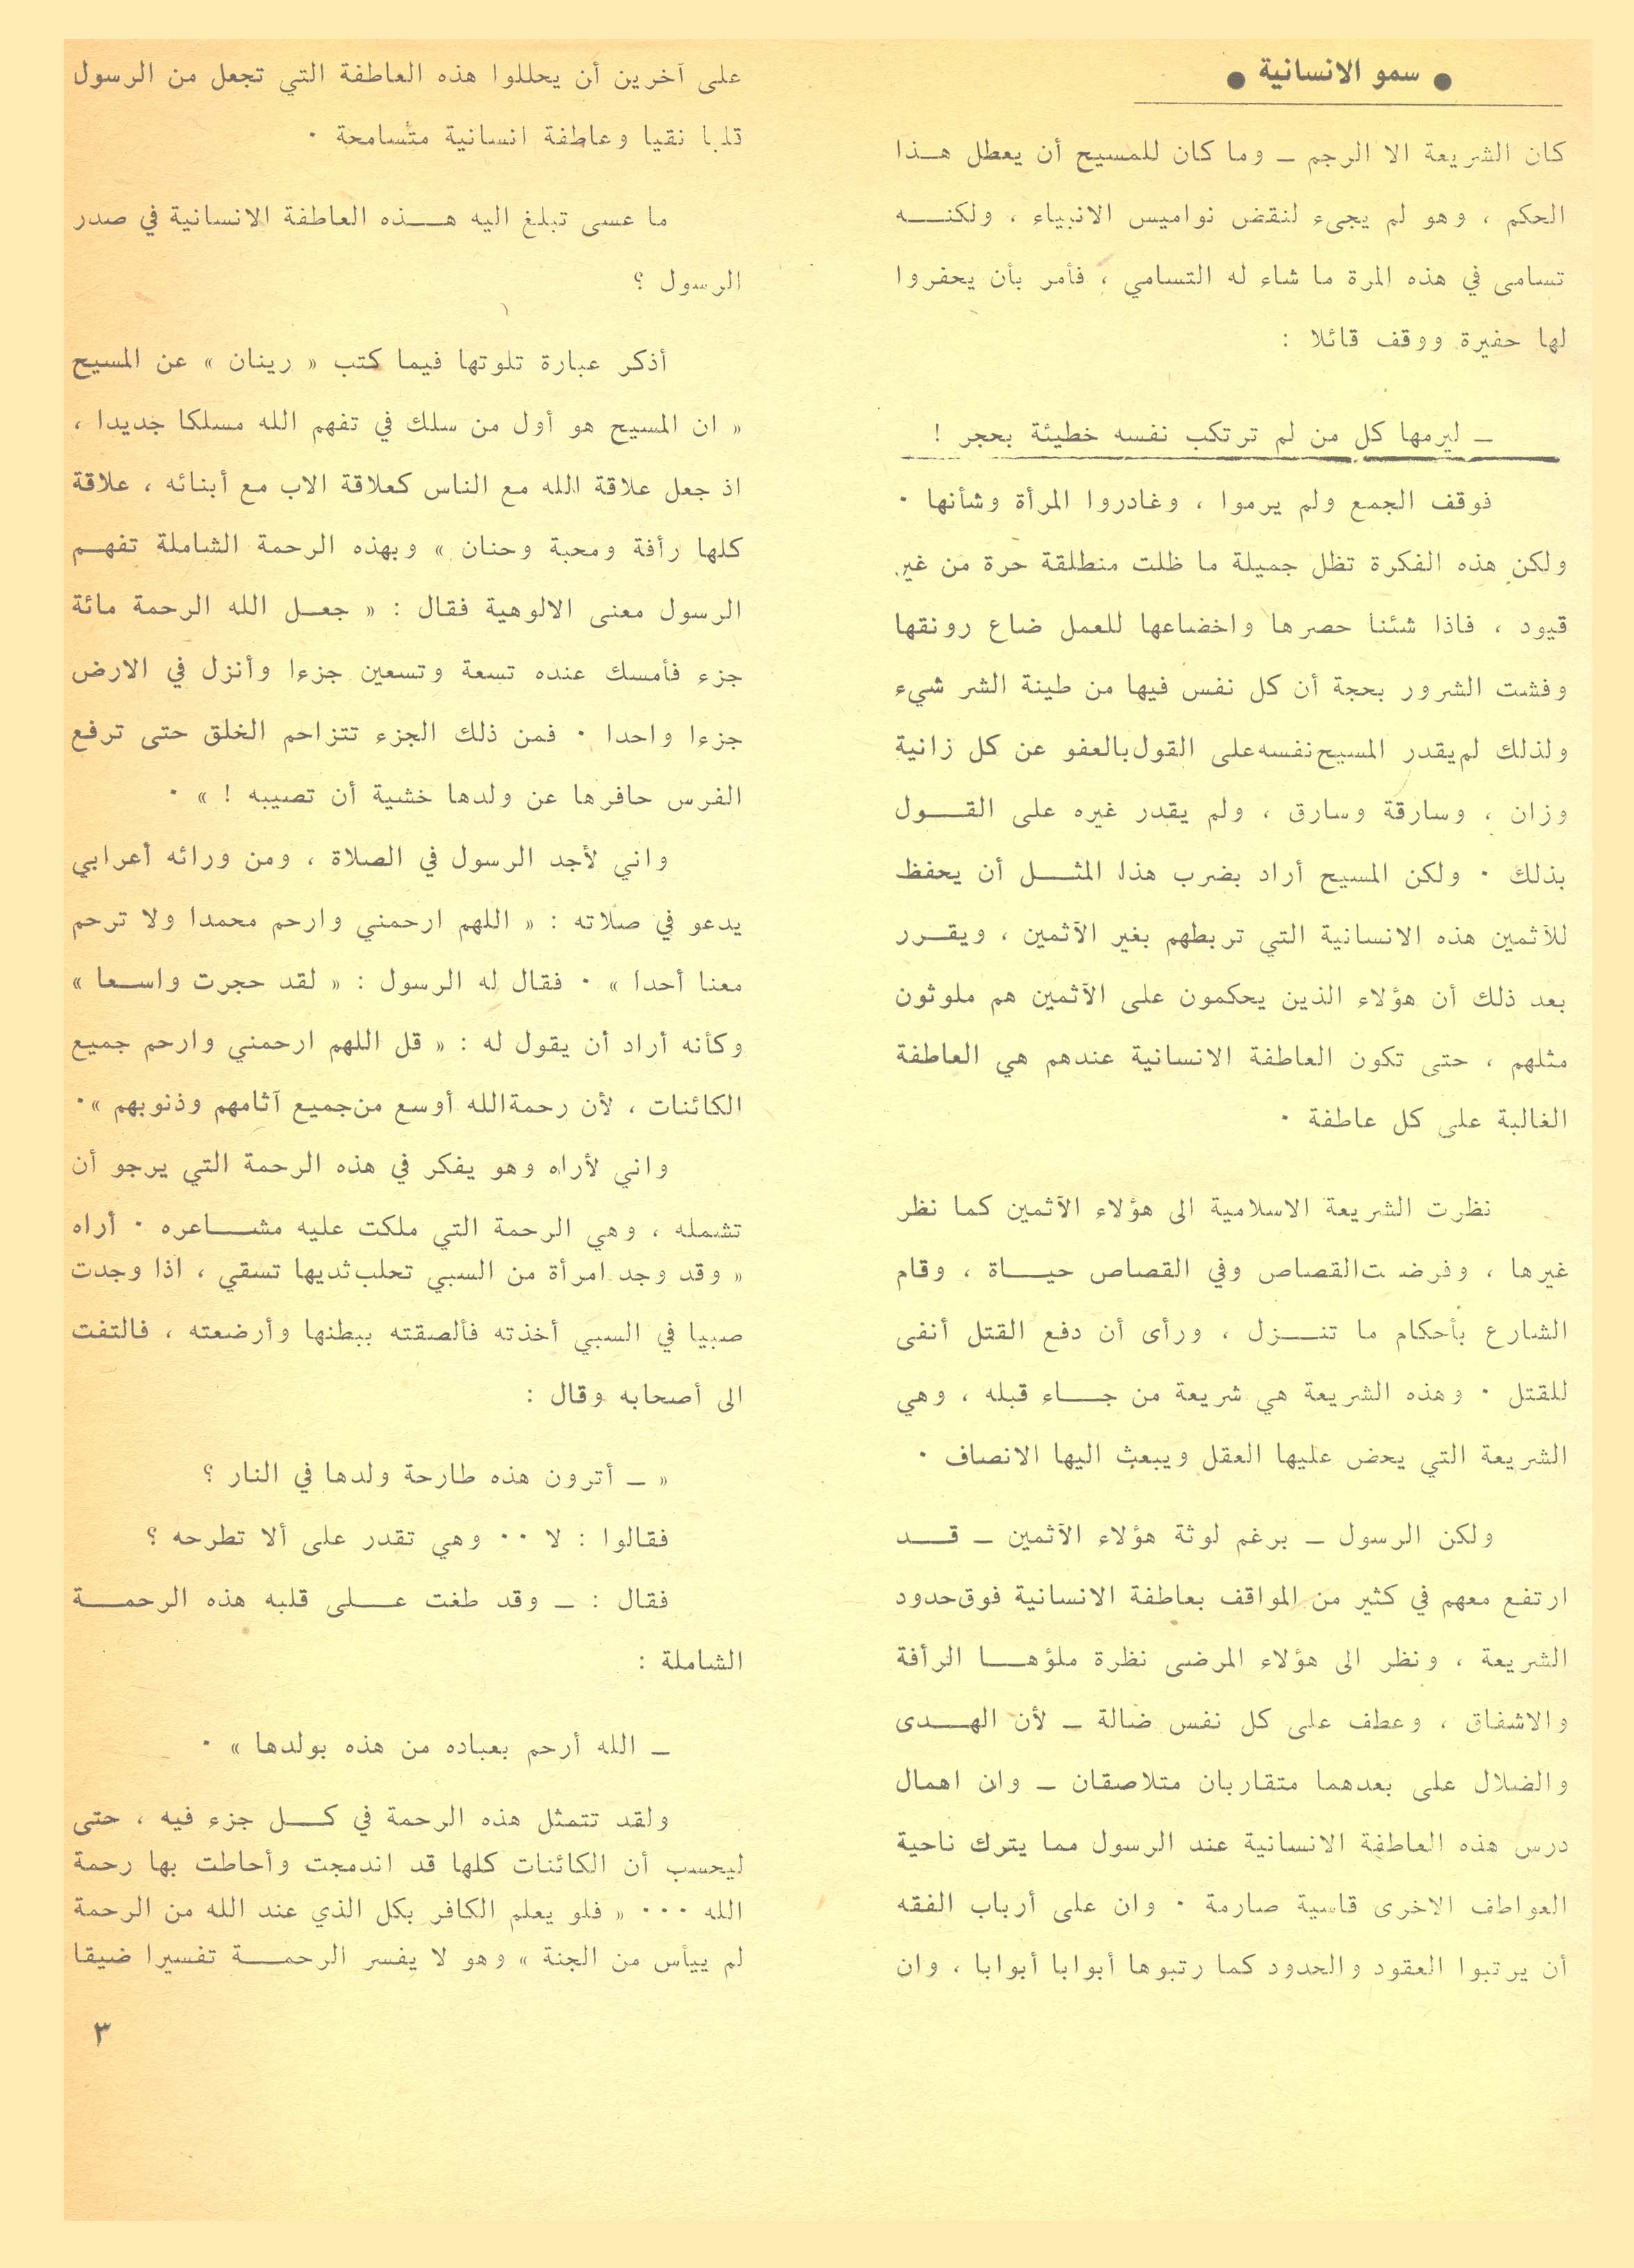 ● سمو الانسانية ●
كان الشريعة الا الرجم ــ وما كان للمسيح أن يعطل هــذا
الحكم ، وهو لم يجىء لنقض نواميس الانبياء ، ولكنـــه
تسامى في هذه المرة ما شاء له التسامي ، فأمر بأن يحفروا
لها حفيرة ووقف قائلا :
ــ ليرمها كل من لم ترتكب نفسه خطيئة بحجر !
فوقف الجمع ولم يرموا ، وغادروا المرأة وشأنها ٠
ولكن هذه الفكرة تظل جميلة ما ظلت منطلقة حرة من غير
قيود ، فاذا شئنا حصرها واخضاعها للعمل ضاع رونقها
وفشت الشرور بحجة أن كل نفس فيها من طينة الشر شيء
ولذلك لم يقدر المسيح نفسه على القول بالعفو عن كل زانية
وزان ، وسارقة وسارق ، ولم يقدر غيره على القـــول
بذلك ٠ ولكن المسيح أراد بضرب هذا المثـــل أن يحفظ
للآثمين هذه الانسانية التي تربطهم بغير الآثمين ، ويقــرر
بعد ذلك أن هؤلاء الذين يحكمون على الآثمين هم ملوثون
مثلهم ، حتى تكون العاطفة الانسانية عندهم هي العاطفة
الغالبة على كل عاطفة ٠
نظرت الشريعة الاسلامية الى هؤلاء الآثمين كما نظر
غيرها ، وفرضت القصاص وفي القصاص حيــاة ، وقام
الشارع بأحكام ما تنـــزل ، ورأى أن دفع القتل أنفى
للقتل ٠ وهذه الشريعة هي شريعة من جـــاء قبله ، وهي
الشريعة التي يحض عليها العقل ويبعث اليها الانصاف ٠
ولكن الرسول ــ برغم لوثة هؤلاء الآثمين ــ قـــد
ارتفع معهم في كثير من المواقف بعاطفة الانسانية فوق حدود
الشريعة ، ونظر الى هؤلاء المرضى نظرة ملؤهـــا الرأفة
والاشفاق ، وعطف على كل نفس ضالة ــ لأن الهـــدى
والضلال على بعدهما متقاربان متلاصقان ــ وان اهمال
درس هذه العاطفة الانسانية عند الرسول مما يترك ناحية
العواطف الاخرى قاسية صارمة ٠ وان على أرباب الفقه
أن يرتبوا العقود والحدود كما رتبوها أبوابا أبوابا ، وان
على آخرين أن يحللوا هذه العاطفة التي تجعل من الرسول
قلبا نقيا وعاطفة انسانية متسامحة ٠
ما عسى تبلغ اليه هـــذه العاطفة الانسانية في صدر
الرسول ؟
أذكر عبارة تلوتها فيما كتب « رينان » عن المسيح
« ان المسيح هو أول من سلك في تفهم الله مسلكا جديدا ،
اذ جعل علاقة الله مع الناس كعلاقة الاب مع أبنائه ، علاقة
كلها رأفة ومحبة وحنان » وبهذه الرحمة الشاملة تفهــم
الرسول معنى الالوهية فقال : « جعــل الله الرحمة مائة
جزء فأمسك عنده تسعة وتسعين جزءا وأنزل في الارض
جزءا واحدا ٠ فمن ذلك الجزء تتزاحم الخلق حتى ترفع
الفرس حافرها عن ولدها خشية أن تصيبه ! » ٠
واني لأجد الرسول في الصلاة ، ومن ورائه أعرابي
يدعو في صلاته : « اللهم ارحمني وارحم محمدا ولا ترحم
معنا أحدا » ٠ فقال له الرسول : « لقد حجرت واســعا »
وكأنه أراد أن يقول له : « قل اللهم ارحمني وارحم جميع
الكائنات ، لأن رحمة الله أوسع من جميع آثامهم وذنوبهم »٠
واني لأراه وهو يفكر في هذه الرحمة التي يرجو أن
تشمله ، وهي الرحمة التي ملكت عليه مشــاعره ٠ أراه
« وقد وجد امرأة من السبي تحلب ثديها تسقي ، اذا وجدت
صبيا في السبي أخذته فألصقته ببطنها وأرضعته ، فالتفت
الى أصحابه وقال :
« ــ أترون هذه طارحة ولدها في النار ؟
فقالوا : لا ٠٠ وهي تقدر على ألا تطرحه ؟
فقال : ــ وقد طغت عـــلى قلبه هذه الرحمـــة
الشاملة :
ــ الله أرحم بعباده من هذه بولدها » ٠
ولقد تتمثل هذه الرحمة في كـــل جزء فيه ، حتى
ليحسب أن الكائنات كلها قد اندمجت وأحاطت بها رحمة
الله ٠٠٠ « فلو يعلم الكافر بكل الذي عند الله من الرحمة
لم ييأس من الجنة » وهو لا يفسر الرحمـــة تفسيرا ضيقا
٣